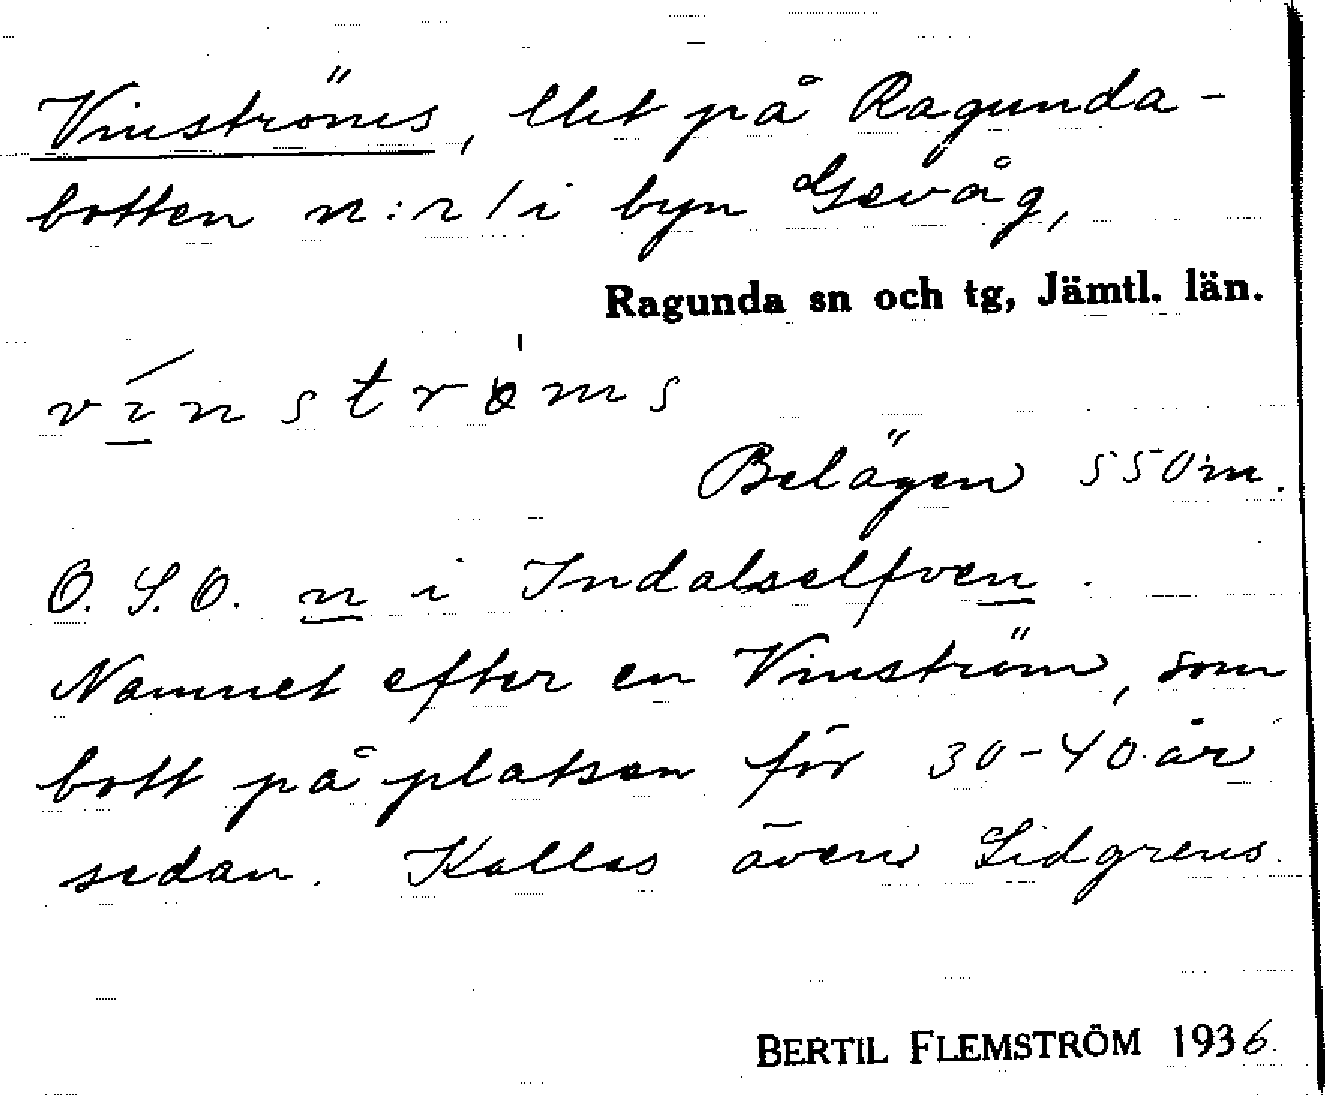 Vinströms, llet på Ragunda-
botten n:r 1 i byn Gevåg,
Ragunda sn och tg, Jämtl. län.
vinstroms
Belägen 550 m.
O. S. O. n i Indalselfven.
Namnet efter en Vinström, som
bott på platsen för 30-40 år
sedan. Kallas även Lidgrens.
BERTIL FLEMSTRÖM 1936.